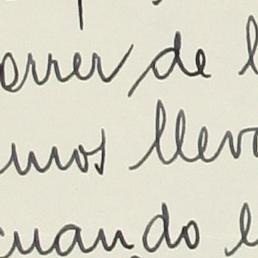 orrer de l
mos lleva
cuando l